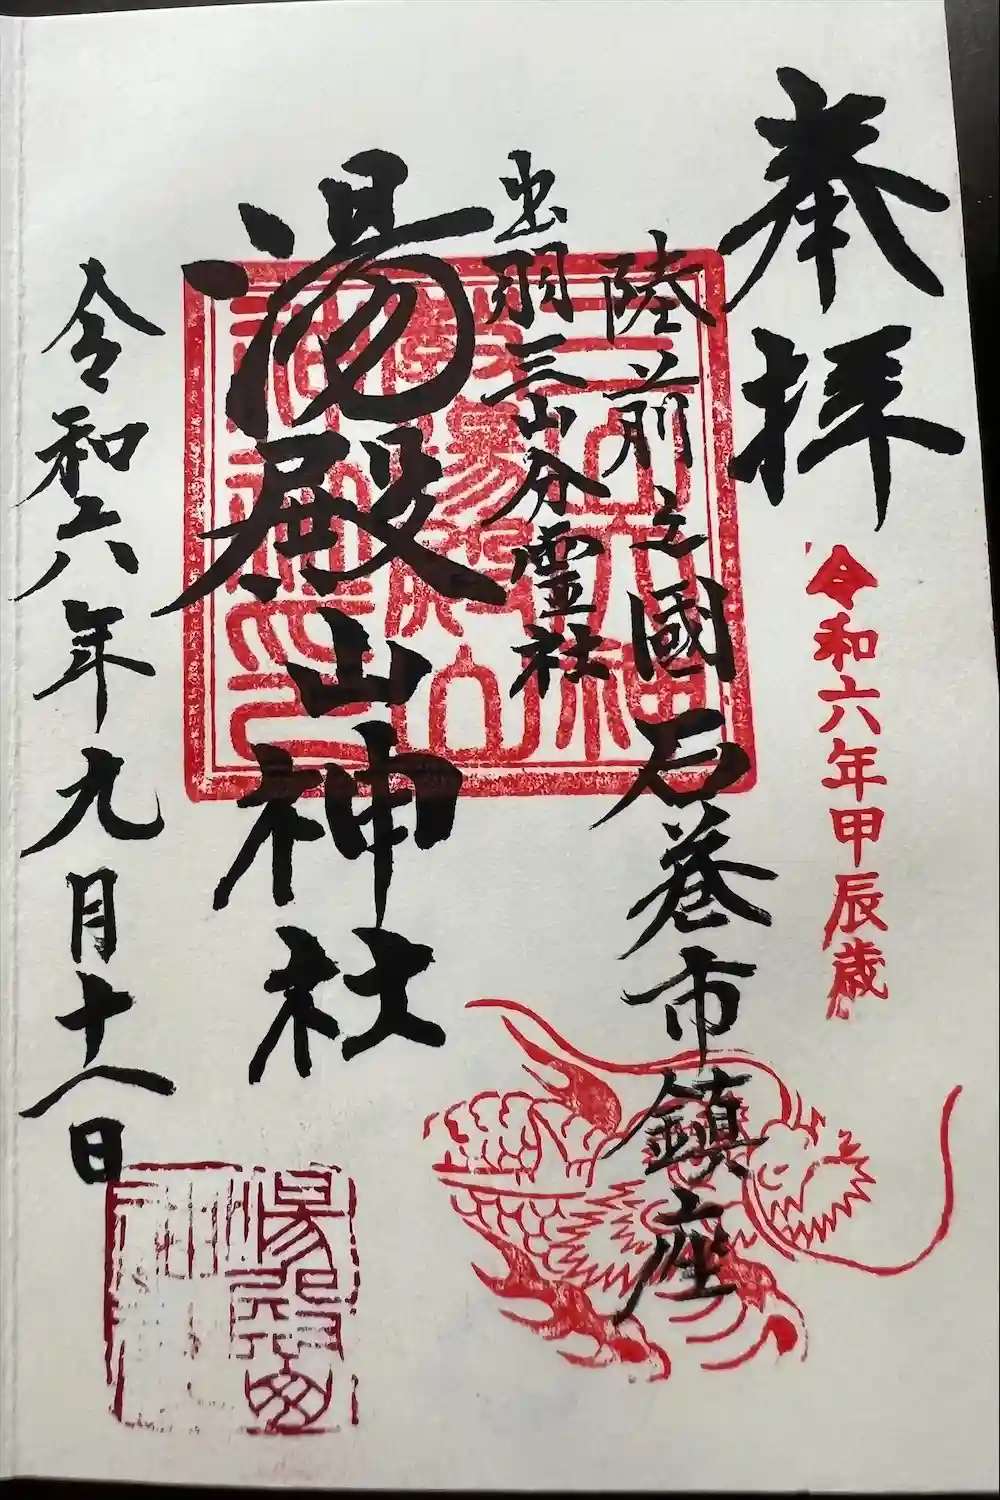 奉拝
令和六年甲辰歳
陸前之國 石巻市鎮座
出羽三山分霊社
湯殿山神社
令和六年九月十八日